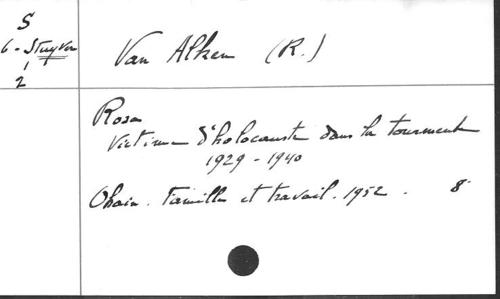 S
6 - Stuyven
1
2
Van Alken (R.)
Rosa
Victime d'holocauste dans la tourmente
1929 - 1940
Ohain. Familles et travail. 1952. 8°